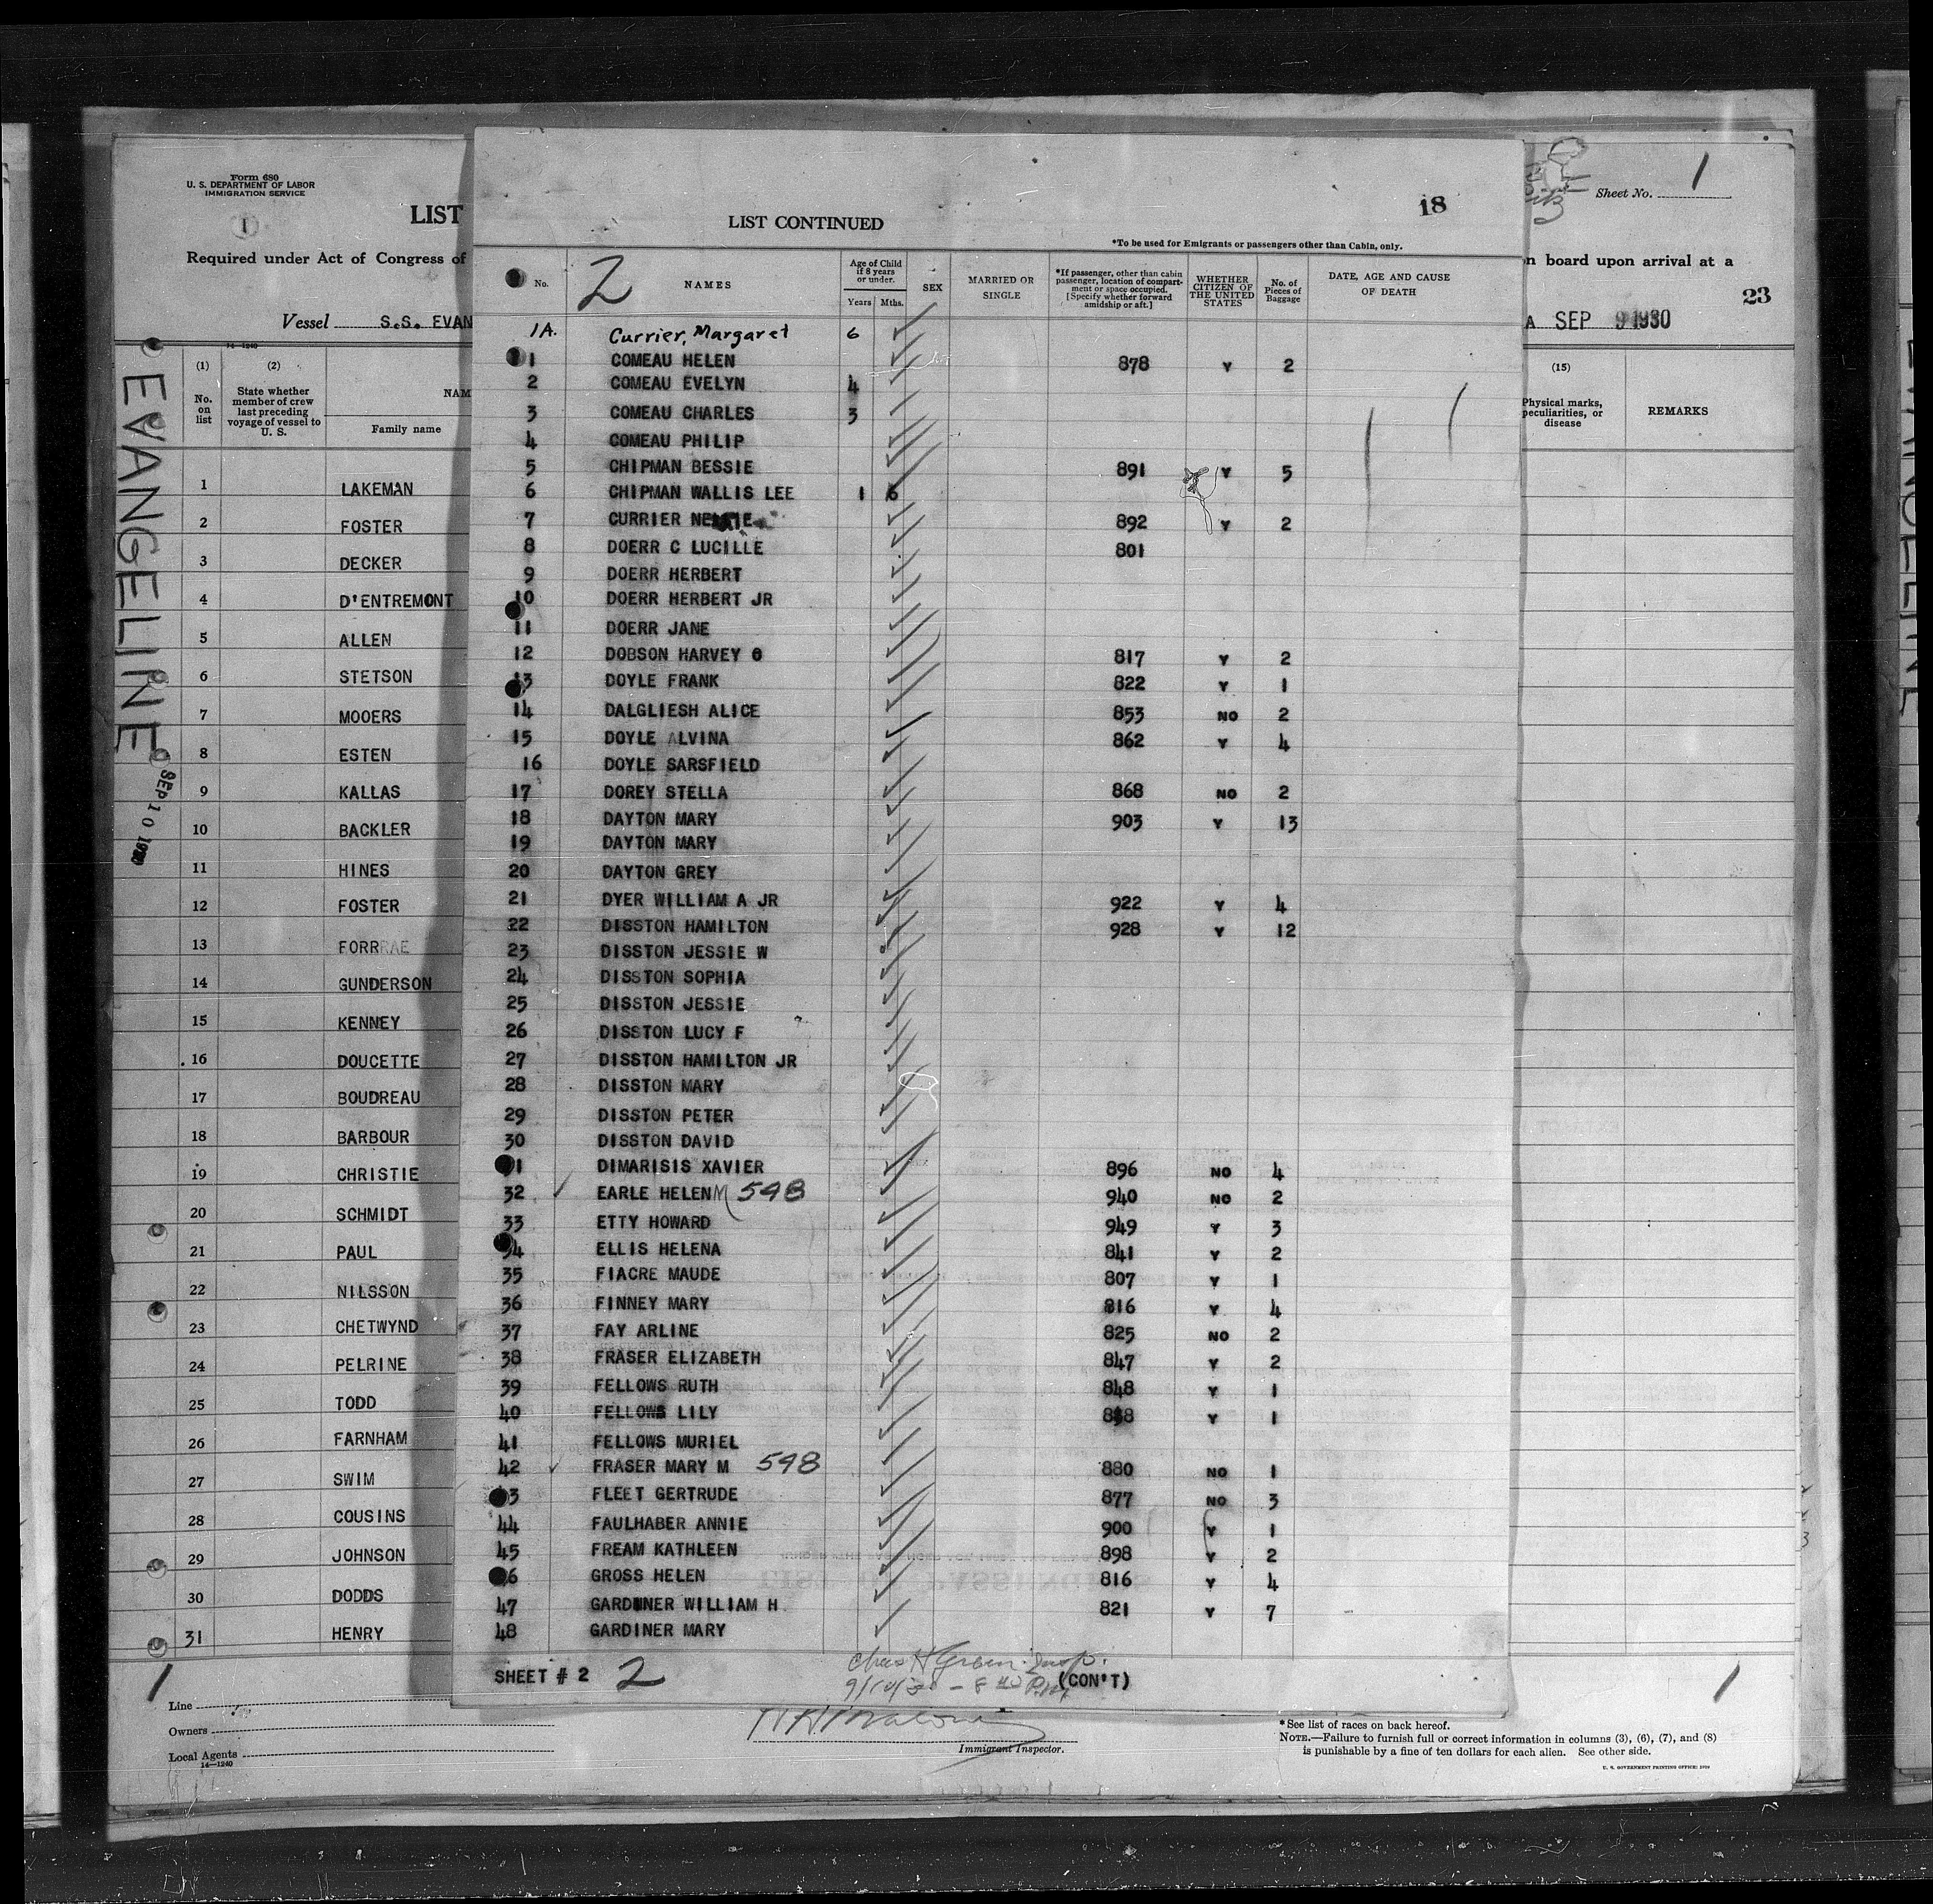 Form 680
U. S. DEPARTMENT OF LABOR
IMMIGRATION SERVICE
1
LIST
Required under Act of Congress of
Vessel S.S. EVAN
14-1240
(1) (2)
No. on list
State whether member of crew last preceding voyage of vessel to U. S.
NAM
Family name
EVANGELINE
SEP 10 1930
1 LAKEMAN
2 FOSTER
3 DECKER
4 D'ENTREMONT
5 ALLEN
6 STETSON
7 MOOERS
8 ESTEN
9 KALLAS
10 BACKLER
11 HINES
12 FOSTER
13 FORRRAE
14 GUNDERSON
15 KENNEY
16 DOUCETTE
17 BOUDREAU
18 BARBOUR
19 CHRISTIE
20 SCHMIDT
21 PAUL
22 NILSSON
23 CHETWYND
24 PELRINE
25 TODD
26 FARNHAM
27 SWIM
28 COUSINS
29 JOHNSON
30 DODDS
31 HENRY
1
Line
Owners
Local Agents
14-1240
LIST CONTINUED
18
*To be used for Emigrants or passengers other than Cabin, only.
No.
2
NAMES
Age of Child if 8 years or under.
Years Mths.
SEX
MARRIED OR SINGLE
*If passenger, other than cabin passenger, location of compartment or space occupied. [Specify whether forward amidship or aft.]
WHETHER CITIZEN OF THE UNITED STATES
No. of Pieces of Baggage
DATE, AGE AND CAUSE OF DEATH
1A. Currier, Margaret 6
1 COMEAU HELEN 878 Y 2
2 COMEAU EVELYN 4
3 COMEAU CHARLES 3
4 COMEAU PHILIP
5 CHIPMAN BESSIE 891 Y 5
6 CHIPMAN WALLIS LEE 1 6
7 CURRIER 892 Y 2
8 DOERR C LUCILLE 801
9 DOERR HERBERT
10 DOERR HERBERT JR
11 DOERR JANE
12 DOBSON HARVEY O 817 Y 2
13 DOYLE FRANK 822 Y 1
14 DALGLIESH ALICE 853 NO 2
15 DOYLE ALVINA 862 Y 4
16 DOYLE SARSFIELD
17 DOREY STELLA 868 NO 2
18 DAYTON MARY 903 Y 13
19 DAYTON MARY
20 DAYTON GREY
21 DYER WILLIAM A JR 922 Y 4
22 DISSTON HAMILTON 928 Y 12
23 DISSTON JESSIE W
24 DISSTON SOPHIA
25 DISSTON JESSIE
26 DISSTON LUCY F
27 DISSTON HAMILTON JR
28 DISSTON MARY
29 DISSTON PETER
30 DISSTON DAVID
31 DIMARISIS XAVIER 896 NO 4
32 EARLE HELEN M 598 940 NO 2
33 ETTY HOWARD 949 Y 3
34 ELLIS HELENA 841 Y 2
35 FIACRE MAUDE 807 Y 1
36 FINNEY MARY 816 Y 4
37 FAY ARLINE 825 NO 2
38 FRASER ELIZABETH 847 Y 2
39 FELLOWS RUTH 848 Y 1
40 FELLOWS LILY 858 Y 1
41 FELLOWS MURIEL
42 FRASER MARY M 598 880 NO 1
43 FLEET GERTRUDE 877 NO 3
44 FAULHABER ANNIE 900 Y 1
45 FREAM KATHLEEN 898 Y 2
46 GROSS HELEN 816 Y 4
47 GARDINER WILLIAM H 821 Y 7
48 GARDINER MARY
SHEET # 2 2
(CON'T)
Immigrant Inspector.
Sheet No. 1
n board upon arrival at a
23
A SEP 9 1930
(15)
Physical marks, peculiarities, or disease
REMARKS
1
*See list of races on back hereof.
NOTE.—Failure to furnish full or correct information in columns (3), (6), (7), and (8)
is punishable by a fine of ten dollars for each alien. See other side.
U. S. GOVERNMENT PRINTING OFFICE: 1929